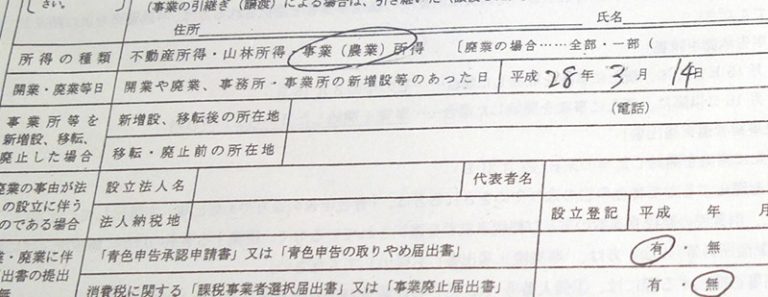 さい。
（事業の引継ぎ（譲渡）による場合は、引き継いだ
住所 氏名
所得の種類 不動産所得・山林所得・事業（農業）所得 〔廃業の場合……全部・一部（
開業・廃業等日 開業や廃業、事務所・事業所の新増設等のあった日 平成 28 年 3 月 14 日
事業所等を
新増設、移転、
廃止した場合
新増設、移転後の所在地 （電話）
移転・廃止前の所在地
廃業の事由が法
の設立に伴う
のである場合
設立法人名 代表者名
法人納税地 設立登記 平成 年 月
・廃業に伴
出書の提出
無
「青色申告承認申請書」又は「青色申告の取りやめ届出書」 有・無
消費税に関する「課税事業者選択届出書」又は「事業廃止届出書」 有・無